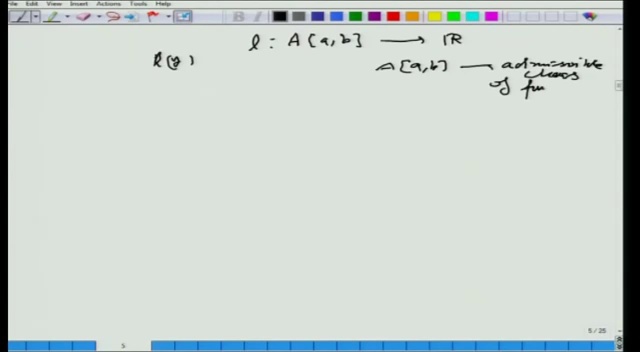 File Edit View Insert Actions Tools Help
l : A[a,b] → R
l(y)
A[a,b] → admissible
class
of fun
5 / 25
5